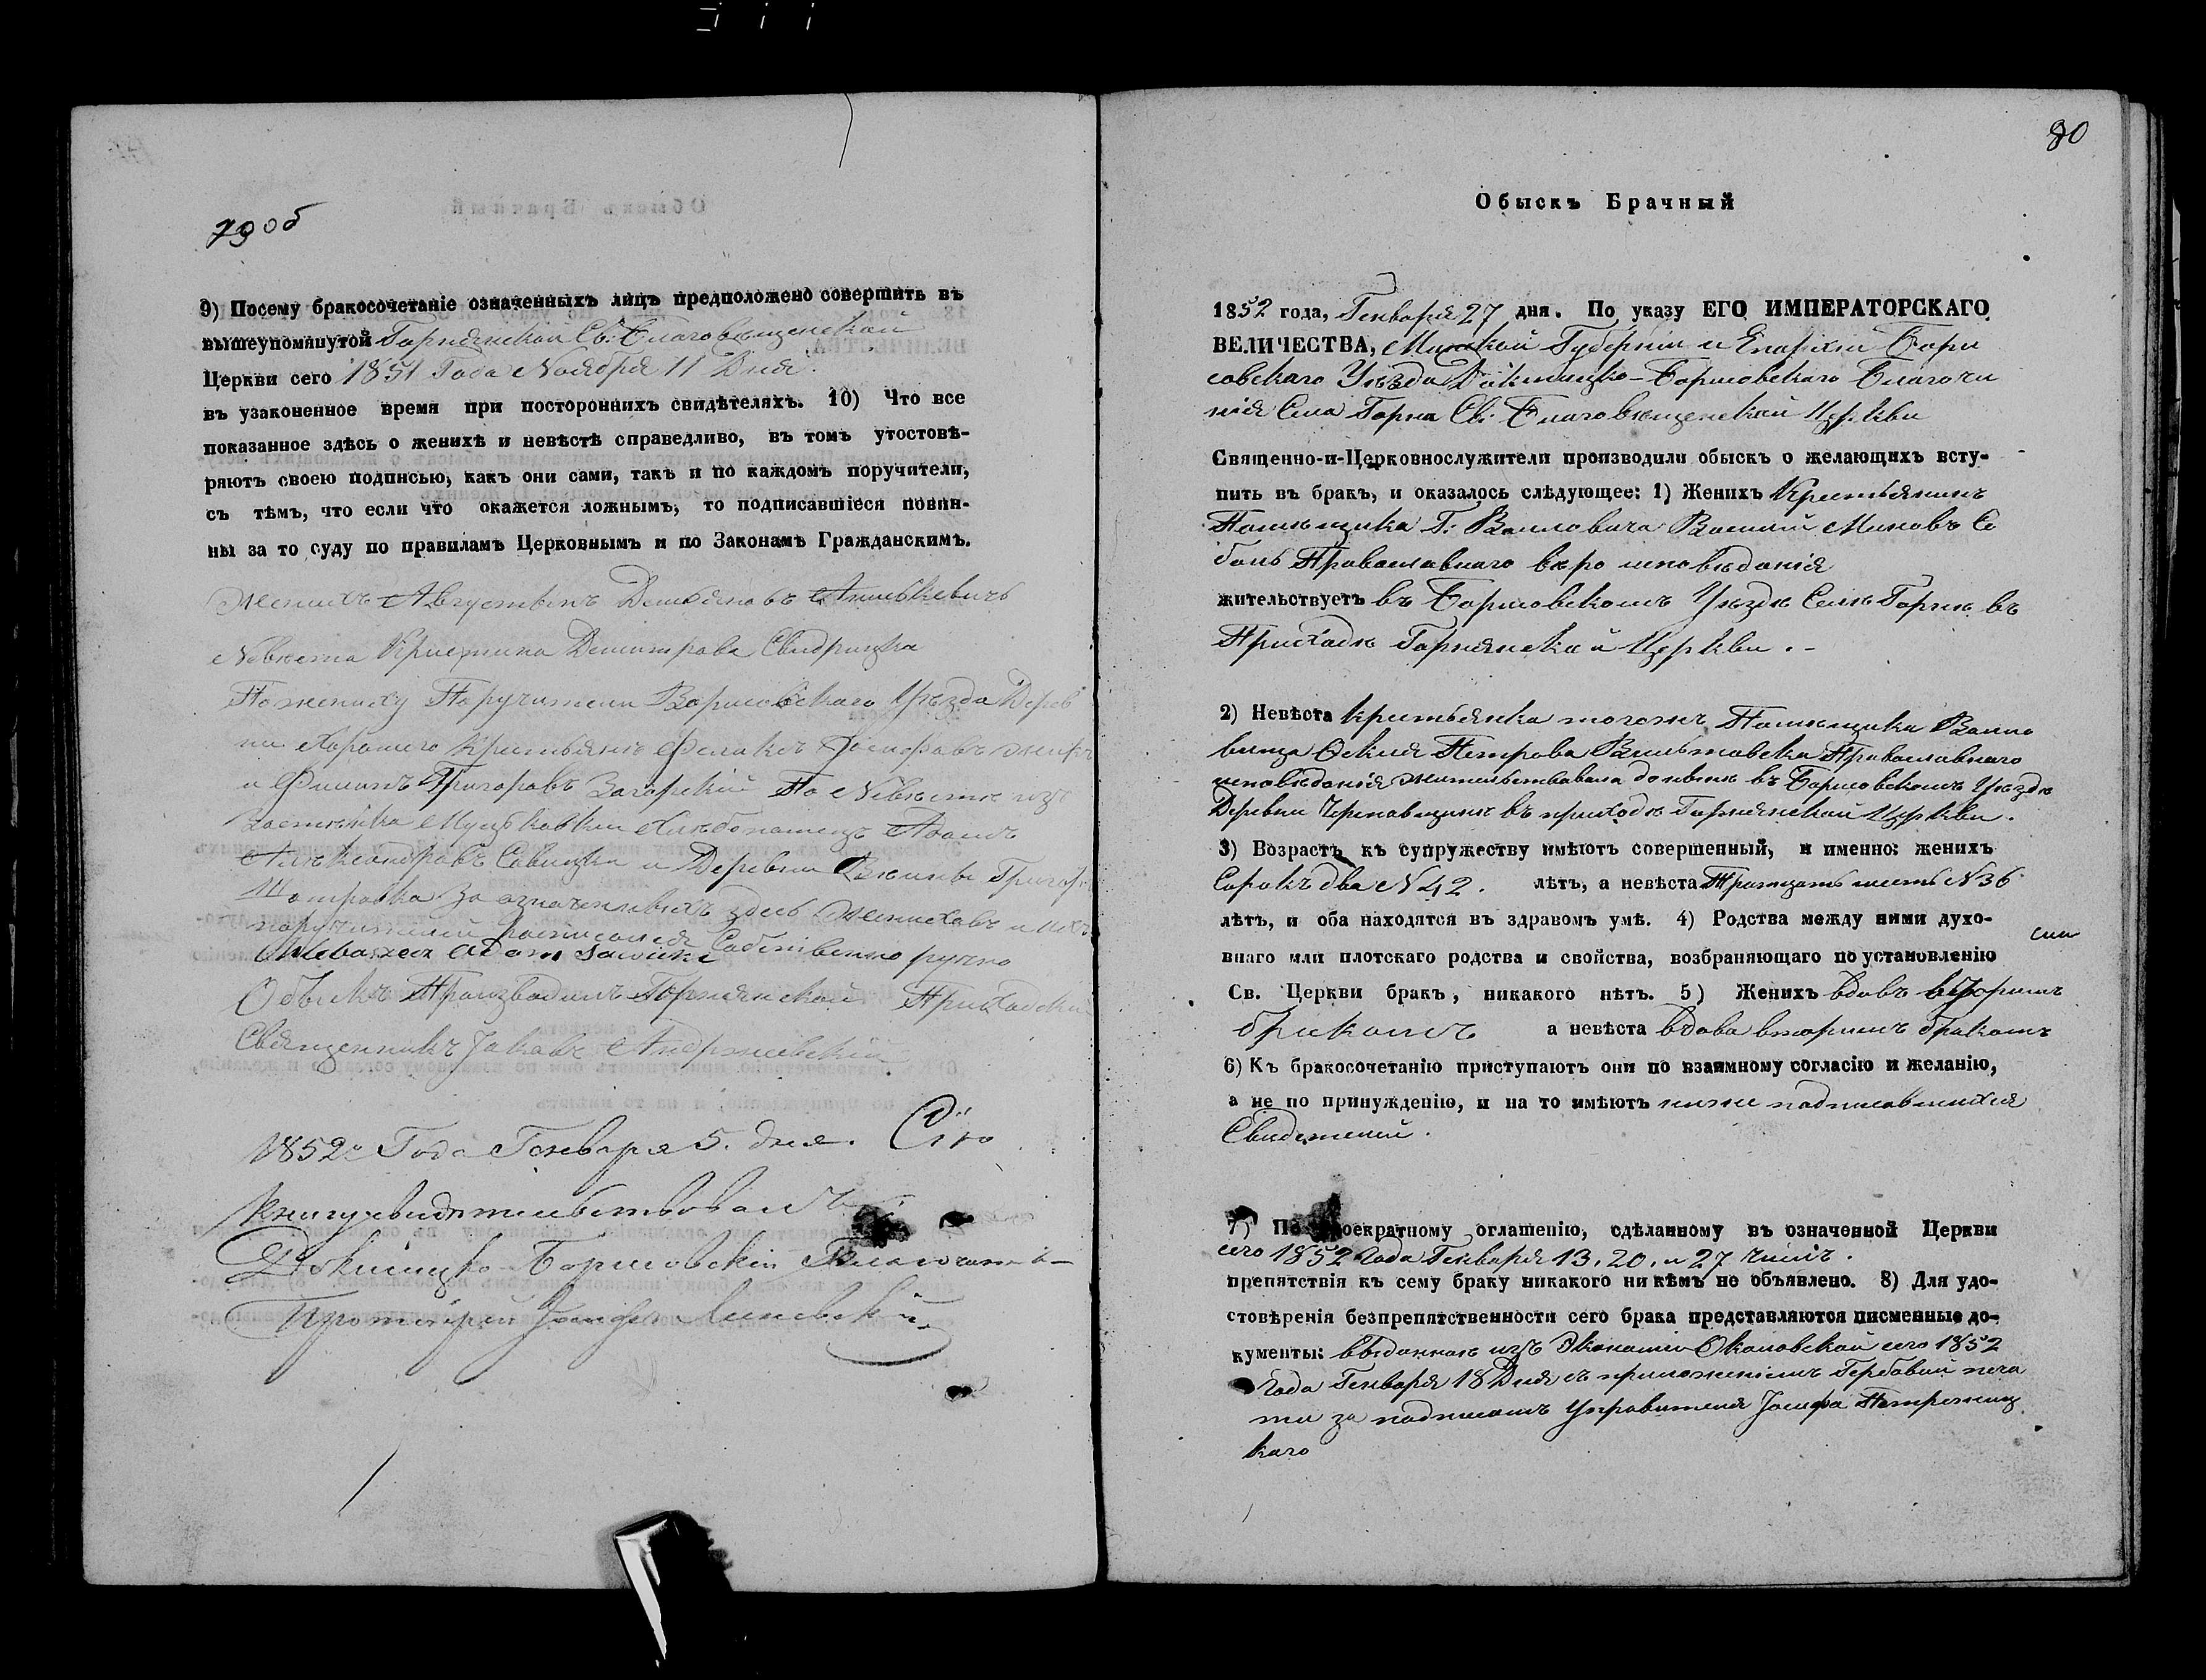 79 об
9) Посему бракосочетаніе означенныхъ лицъ предположено совершить въ
вышеупомянутой Горнянской Св: Благовѣщенской
Церкви сего 1851 Года Ноября 11 Дня.
въ узаконенное время при постороннихъ свидѣтеляхъ. 10) Что все
показанное здѣсь о женихѣ и невѣстѣ справедливо, въ томъ утостовѣ-
ряютъ своею подписью, какъ они сами, такъ и по каждомъ поручители,
съ тѣмъ, что если что окажется ложнымъ, то подписавшіеся повин-
ны за то суду по правиламъ Церковнымъ и по Законамъ Гражданскимъ.
Женихъ Августынъ Демьяновъ
Невѣста Крисцина Димитрова Свидрицка
По жениху Поручители Борисовскаго Уѣзда Дерев
ни Крестьянъ
и Филипъ Григоровъ Загорскій По Невѣсте изъ
Застѣнка Хлѣбопашецъ Адамъ
Александровъ Савицки и Деревни Григор
за означенныхъ здесь Жениховъ и ихъ
поручителей росписался Собственно ручно
Adam Sawicki
Обыскъ Производилъ Горнянской Приходски
Священникъ Іаковъ Андржеевскій
1852 Года Генваря 5. дня. Сію
Книгу свидѣтельствовалъ
Докшицко-Борисовскій Благочин-
Протоіерей Іосифъ
80
Обыскъ Брачный
1852 года, Генваря 27 дня. По указу ЕГО ИМПЕРАТОРСКАГО
ВЕЛИЧЕСТВА, Минской Губерніи и Епархіи Бори
совскаго Уѣзда Докшицко-Борисовскаго Благочи
нія Села Горна Св. Благовѣщенской Церкви
Священно-и-Церковнослужители производили обыскъ о желающихъ всту-
пить въ бракъ, и оказалось слѣдующее: 1) Женихъ Крестьянинъ
Помѣщика Г: Ваньловича Василій Миновъ Со
боль Православнаго вѣро исповѣданія
жительствуетъ въ Борисовскомъ Уѣздѣ Селѣ Горнѣ въ
Приходѣ Горнянской Церкви.-
2) Невѣста Крестьянка того жъ Помѣщика Ванло
вица Петрова Православнаго
исповѣданія жительствовала до нынѣ въ Борисовскомъ Уѣздѣ
Деревни въ приходѣ Горнянской Церкви.
3) Возрастъ къ супружеству имѣютъ совершенный, и именно: женихъ
Сорокъ два N 42. лѣтъ, а невѣста Тритцать шесть N 36
лѣтъ, и оба находятся въ здравомъ умѣ. 4) Родства между ними духо-
внаго или плотскаго родства и свойства, возбраняющаго по установленію
Св. Церкви бракъ, никакого нѣтъ. 5) Женихъ вдовъ вторымъ
бракомъ а невѣста вдова вторымъ бракомъ
6) Къ бракосочетанію приступаютъ они по взаимному согласію и желанію,
а не по принужденію, и на то имѣютъ ниже подписавшихся
Свидетелей.
7) По троекратному оглашенію, сдѣланному въ означенной Церкви
сего 1852 Года Генваря 13, 20, и 27 чиселъ.
препятствія къ сему браку никакого ни кѣмъ не объявлено. 8) Для удо-
стовѣренія безпрепятственности сего брака представляются писменные до-
кументы: выданная изъ Экономіи Околовской сего 1852
Года Генваря 18 Дня съ приложеніемъ Гербовый печа
ти за подписомъ Управителя Іосифа
каго